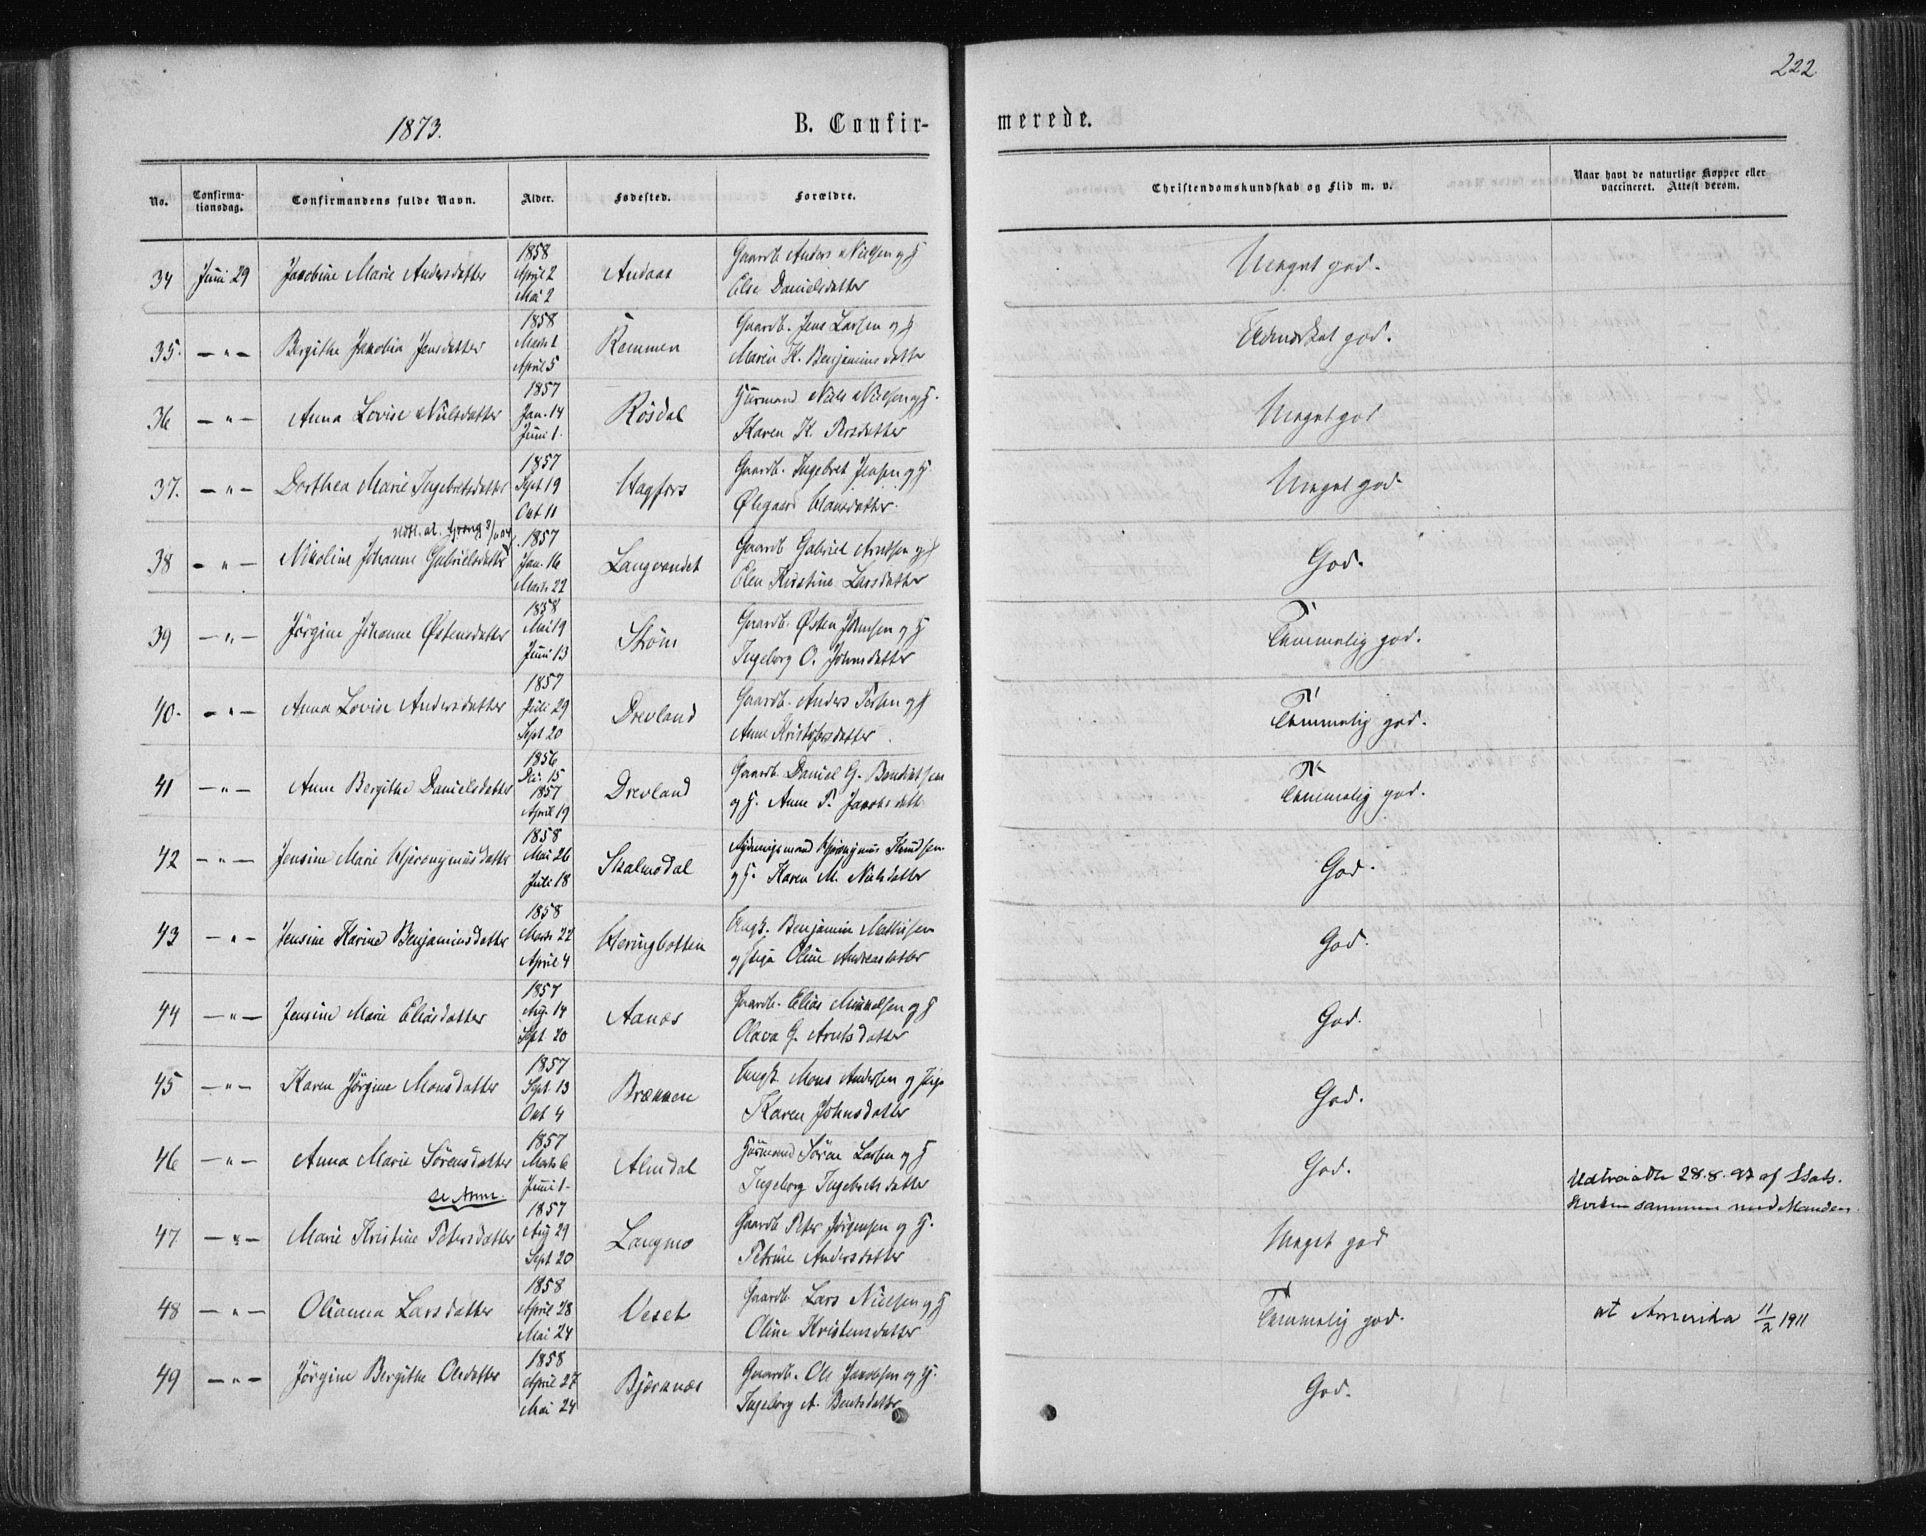 222
1873.
B. Confir-
merede.
No.
Confirma-
tionsdag.
Confirmandens fulde Navn.
Alder.
Fødested.
Forældre.
Christendomskundskab og Flid m. v.
Naar havt de naturlige Kopper eller
vaccineret. Attest derom.
34 Juni 29 Jacobine Marie Andersdatter 1858 April 2 Mai 2 Andaas Gaardb. Anders Nielsen og H Else Danielsdatter Meget god.
35. — " — Bergithe Jakobia Jensdatter 1858 Marts 1 April 5 Remmen Gaardb. Jens Larsen og H Maren K. Benjaminsdatter Udmærket god.
36 — " — Anna Lovise Nielsdatter 1857 Jan. 14 Juni 1. Rösdal Huusmand Niels Nielsen og H. Karen K. Persdatter Meget god
37. — " — Dorthea Marie Ingebretsdatter 1857 Sept 19 Okt 11 Hagfors Gaardb. Ingebret Jensen og H. Ølegaard Hansdatter. Meget god.
38 — " — Nikoline Johanne Gabrielsdatter 1857 Jan. 16 Marts 22 Langvandet Gaardb Gabriel Arntsen og H Elen Kirstine Larsdatter God.
39 — " — Jörgine Johanne Østensdatter 1858 Mai 19 Juni 13 Ström Gaardb. Østen Johnsen og H Ingeborg O. Johnsdatter Temmelig god.
40. — " — Anna Lovise Andersdatter 1857 Juli 29 Sept 20 Drevland Gaardb. Anders Persen og H Anne Kristofersdatter. Temmelig god.
41 — " — Anne Bergithe Danielsdatter 1856 De. 15 1857 April 19 Drevland Gaardb. Daniel G. Bendiktsen og H. Anne P. Jacobsdatt Temmelig god.
42 — " — Jensine Marie Hjeronymusdatter 1858 Mai 26 Juli 18 Skalmodal Nybyggsmand Hjeronymus Knudsen og H. Karen M. Nielsdatter God.
43 — " — Jensine Karine Benjaminsdatter 1858 Marts 22 April 4 Heringbotten Ungk. Benjamin Mathisen og Pige Oline Andreasdatter God.
44 — " — Jensine Marie Eliasdatter 1857 Aug. 14 Sept 20 Aanæs Gaardb. Elias Mikkelsen og H Olava G. Arntsdatter God.
45 — " — Karen Jörgine Monsdatter 1857 Sept 13 Okt 4 Brækken Ungk. Mons Andersen og Pige Karen Johnsdatter God.
46 — " — Anna Marie Sörensdatter 1857 Marts 6 Juni 1. Almdal Huusmand Sören Larsen og H Ingeborg Ingebrichtsdatter God.
Udtraadte 28.8.97 af Stats-
kirken sammen med Manden
47 — " — Marie Kristine Petersdatter 1857 Aug 29 Sept 20 Langmo Gaardb Peter Jörgensen og H. Petrine Andersdatter Meget god
48 — " — Olianna Larsdatter 1858 April 28 Mai 24 Veset Gaardb. Lars Nielsen og H Oline Kristensdatter Temmelig god. at Amerika 11/2 1911
49 — " — Jörgine Bergithe Olsdatter 1858 April 27 Mai 24 Bjørnnæs Gaardb. Ole Jakobsen og H. Ingeborg A. Bentsdatter God.